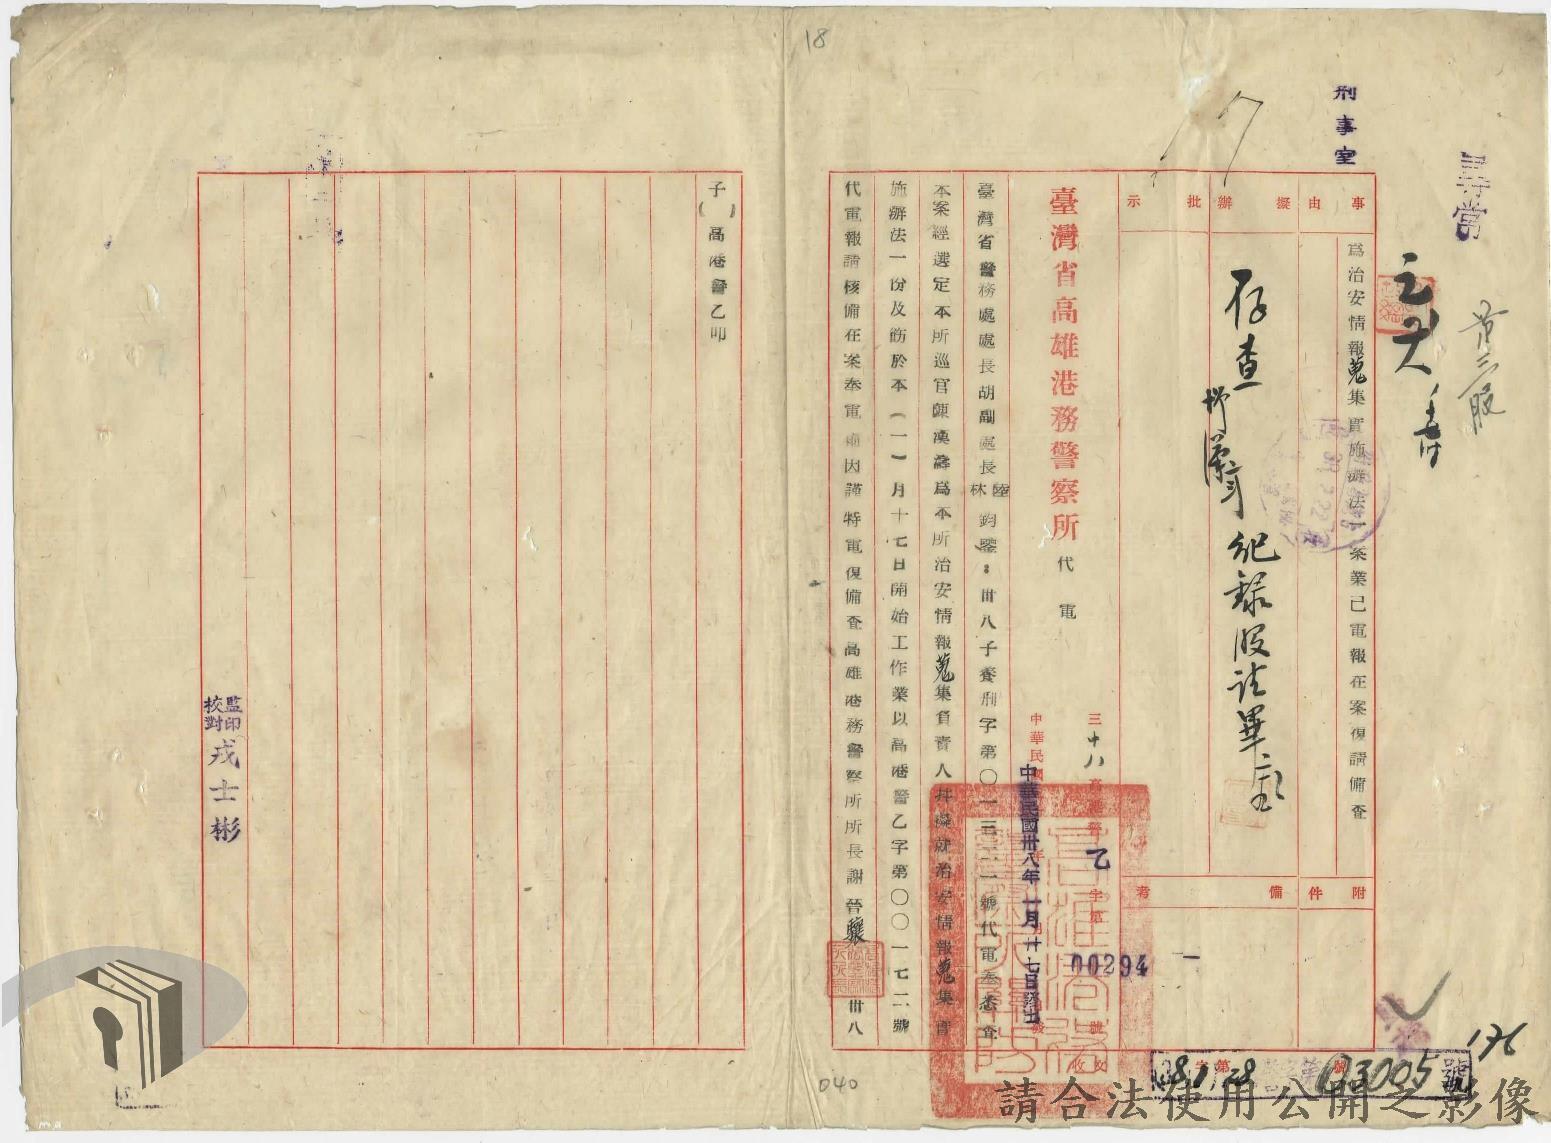 18
刑事室
尋常
廿三股
事由
為治安情報蒐集實施辦法一案業已電報在案復請備查
擬辦
批示
存查
紀錄股
附件
備考
臺灣省高雄港務警察所 代電
三十八
高港警乙字第00294號
中華民國
中華民國卅八年一月廿七日發出
臺灣省警務處處長胡副處長林陸鈞鑒：卅八子養刑字第〇一三二一號代電奉悉查
本案經選定本所巡官陳漢濤為本所治安情報蒐集負責人并擬就治安情報蒐集實
施辦法一份及飭於本（一）月十七日開始工作業以高港警乙字第〇〇一七二號
代電報請核備在案奉電前因謹特電復備查高雄港務警察所所長謝晉驤卅八
子（ ）高港警乙叩
監印
校對
戎士彬
收文
字第
號
38 1 28
03005
176
040
請合法使用公開之影像